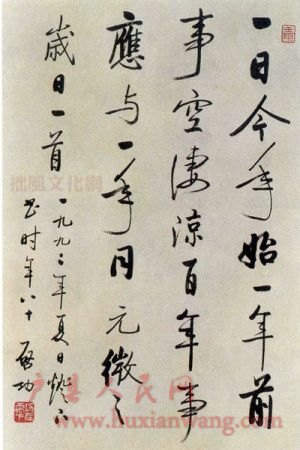 一日今年始一年前
事空淒涼百年事
應与一年同元微之
歲日一首
一九九二年夏日灯下
书时年八十 启功
拙風文化網
户县人民网
www.huxianwang.com